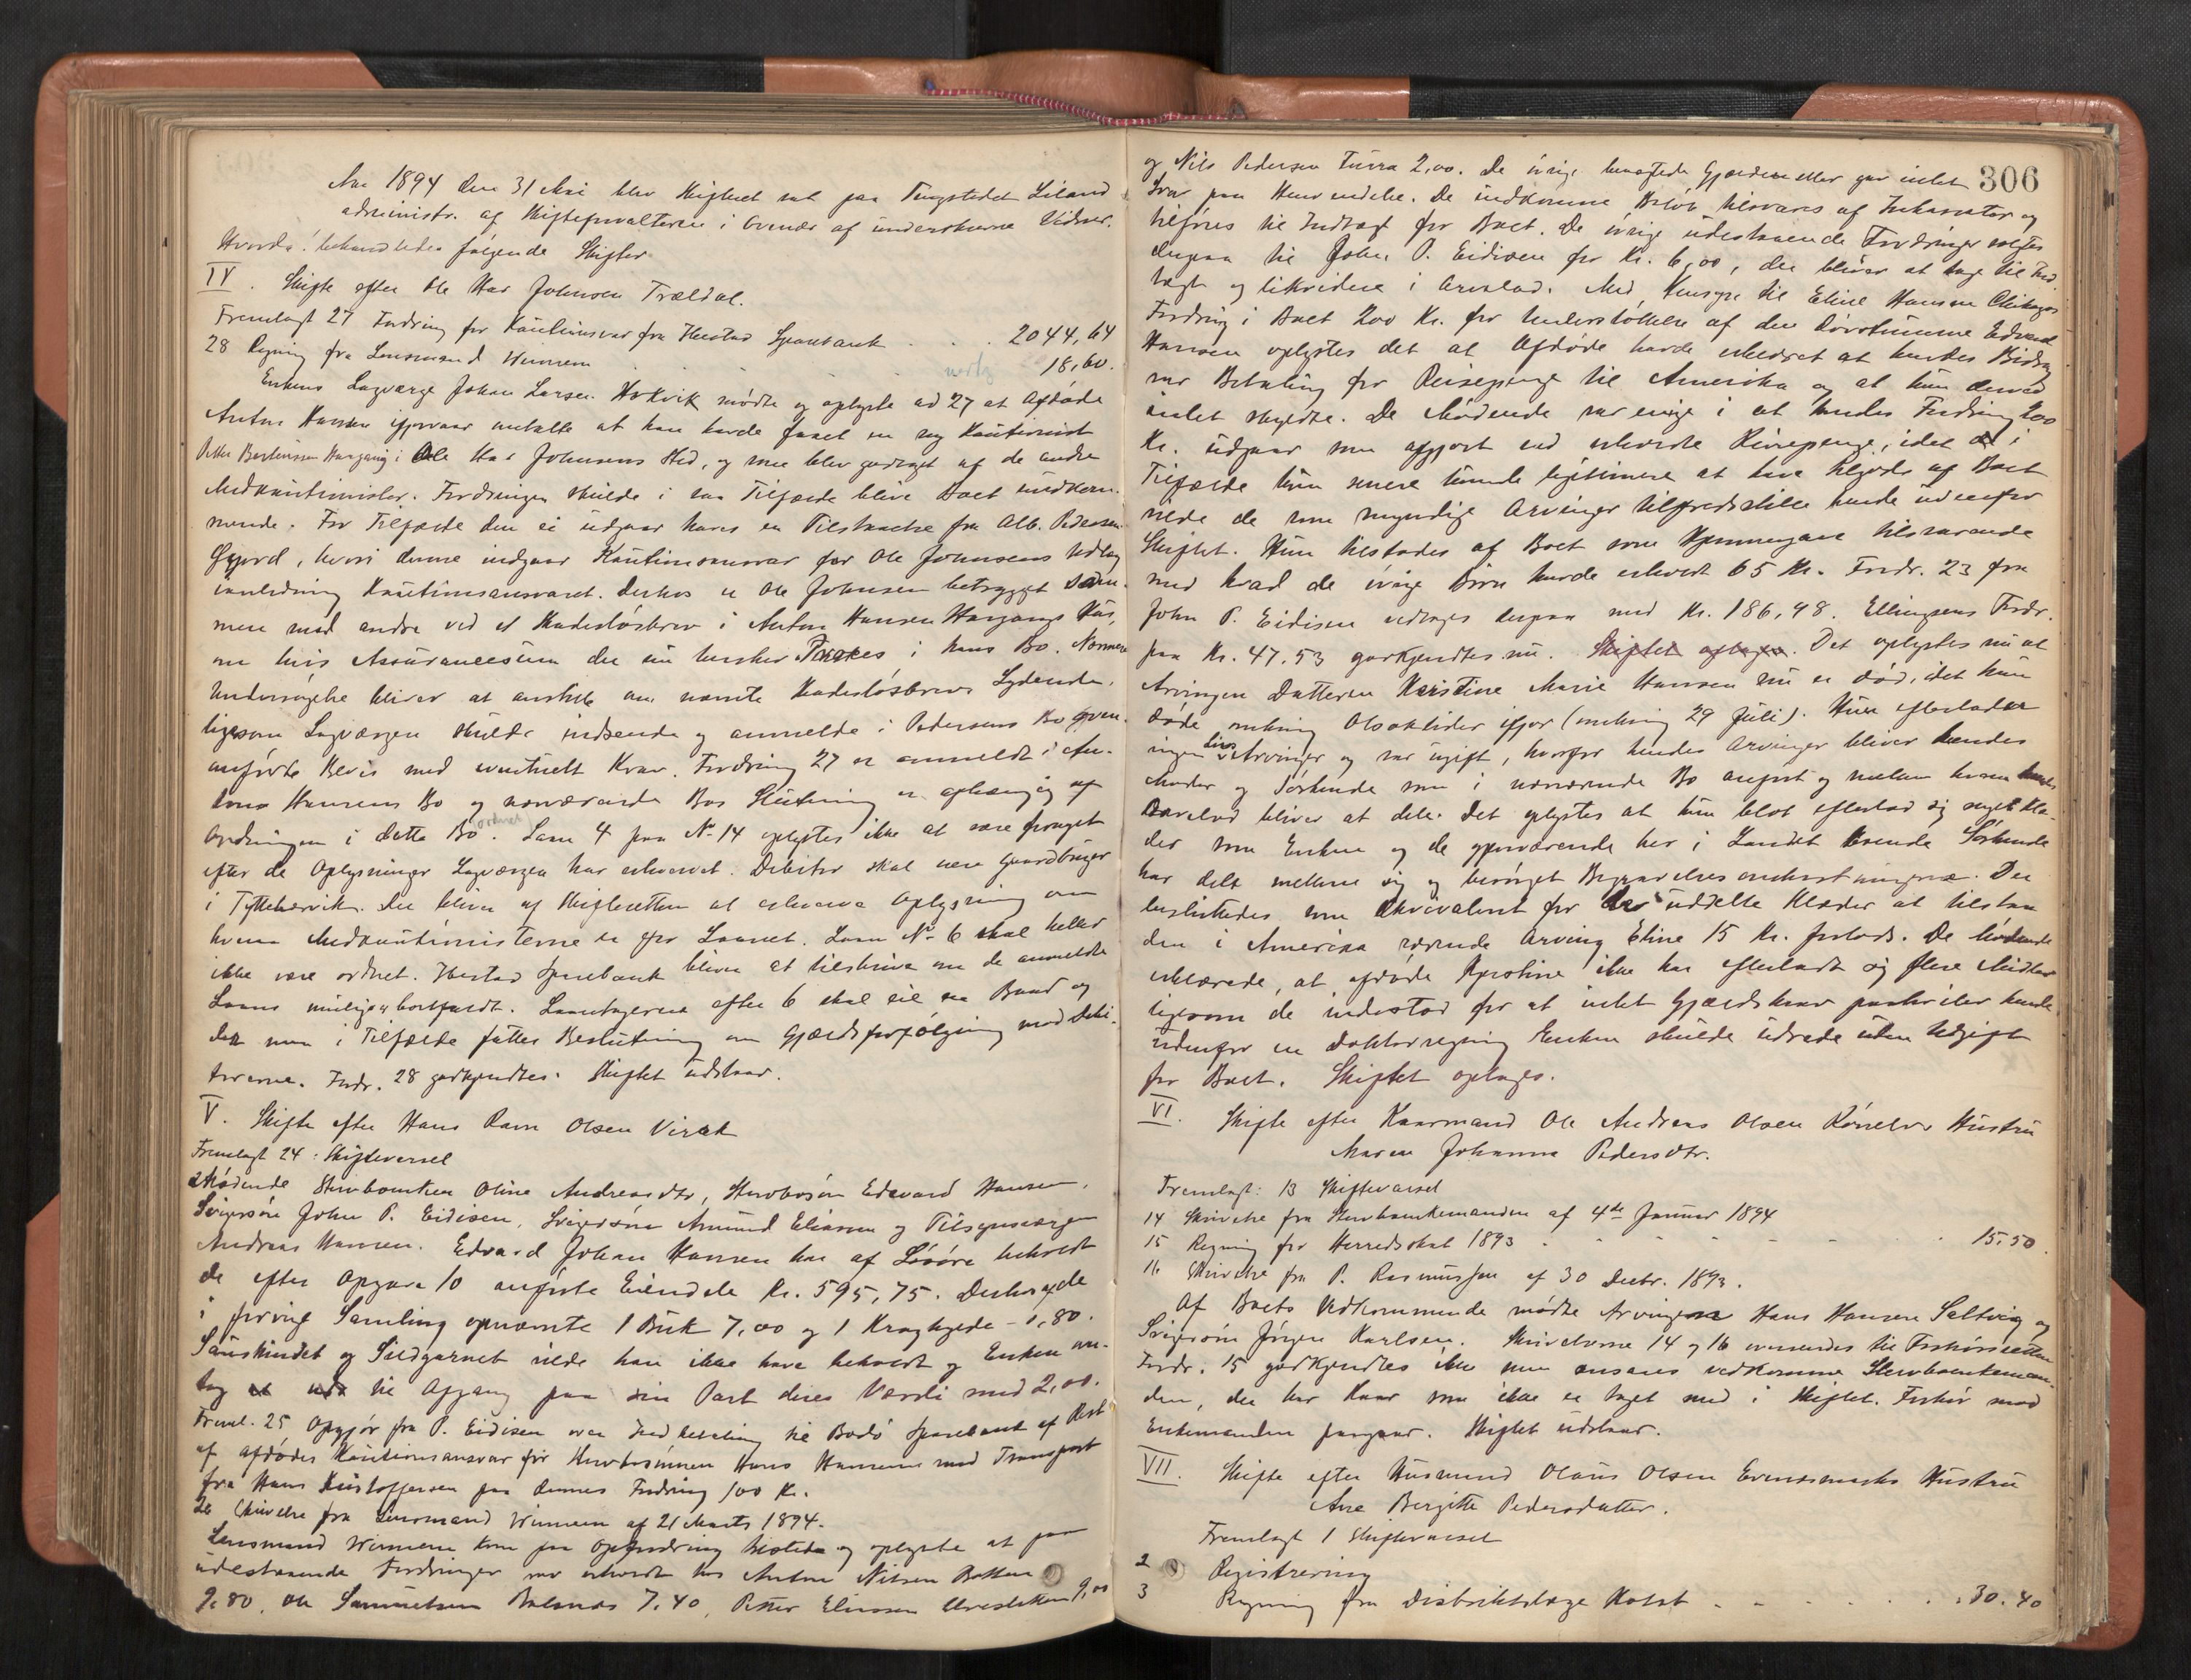 Aar 1894 den 31 Mai blev Skifteret sat paa Tingstedet Liland
administr. af Skifteforvalteren i Overvær af underskrevne Vidner.
Hvorda! behandledes følgende Skifter
IV. Skifte efter Ole Har Johnsen Trældal.
Fremlagt 27 Fordring for Kautionsvar fra Ibestad Sparebank . . . 2044,64
28 Regning fra Lensmand Wennem 18,60.
Enkens Laugværge Johan Larsen Hokvik mødte og oplyste ad 27 at Afdøde
Anton Hansen ifjorvaar antatte at han havde faaet en ny Kautionist
Petter Bertinussen Hargang i Ole Har Johnsens Sted, og som blev godtaget af de andre
Medkautionister. Fordringen skulde i saa Tilfælde blive Boet uvedkom-
mende. For Tilfælde den ei udgaar haves en Tilstaaelse fra Alb. Pedersen
Gjord, hvori denne indgaar Kautionsansvar for Ole Johnsens Udlæg
i anledning Kautionsansvaret. Derhos er Ole Johnsen betrygget sam-
men med andre ved et Skadesløsbrev i Anton Hansen Hargangs Hus,
om hvis Assurancesum der nu tvistes i hans Bo. Nærmere
Undersøgelse bliver at anstille om nævnte Skadesløsbrevs Lydende,
ligesom Laugværgen skulde indsende og anmelde i Pedersens Bo oven-
anførte Bevis med eventuelt Krav. Fordring 27 er anmeldt i An-
tons Hansens Bo og nærværende Bos Slutning er afhængig af
Ordningen i dette Bo. Laan 4 paa No 14 oplystes ikke at være fragaet
efter de Oplysninger Laugværgen har erhvervet. Debitor skal være Gaardbruger
i Tyttebærvik. Der bliver af Skifteretten at erhverve Oplysning om
hvem Medkautionisterne er for Laanet. Laan No 6 skal heller
ikke være ordnet. Ibestad Sparebank bliver at tilskrive om de anmeldte
Laans muligen bortfaldt. Laantagerne efter 6 skal eie en Baad og
der maa i Tilfælde fattes Beslutning om Gjældsforfølgning mod Debi-
torerne. Fordr. 28 godkjendtes. Skiftet udstaar.
V. Skifte efter Hans Ravn Olsen Virak
Fremlagt 24: Skiftevarsel
Mødende Stervboenken Oline Andreasdtr, Stervbosøn Edevard Hansen,
Svigersøn John P. Eidisen, Svigersøn Amund Eliasen og Tilsynsværgen
Andreas Hansen. Edvard Johan Hansen har af Løsøre beholdt
de efter Opgave 10 anførte Eiendele Kr. 595,75. Derhos de
i forrige Samling opnævnte 1 Buk 7,00 og 1 Kraghyede - 1,80.
Saueskindet og Sildgarnet vilde han ikke have beholdt og Enken an-
tog til Afgang paa sin Part deres Værdi med 2,00.
Freml. 25 Opgjør fra P. Eidisen over Indbetaling til Bodø Sparebank af Rest
af afdødes Kautionsansvar for Stervbosønnen Hans Hansen med Transport
fra Hans Kristoffersen paa dennes Fordring 100 Kr.
26 Skrivelse fra Lensmand Wennem af 21 Marts 1894.
Lensmand Wennem kom paa Opfordring tilstede og oplyste at paa
udestaaende Fordringer var erholdt hos Anton Nilsen Botten
9.80, Ole Samuelsen Balsnes 7.40, Petter Eliassen 9,00
306
og Nils Pedersen Turra 2,00. De øvrige krævede Gjældnere eller gav intet
Svar paa Henvendelse. De indkomne Beløb tilsvares af Inkassator og
tilføres til Indtægt for Boet. De øvrige udestaaende Fordringer solgtes
derpaa til John P. Eidisen for Kr. 6,00, der bliver at tage til Ind-
tægt og likvidere i Arvelod. Med Hensyn til Eline Hansen Chikagos
Fordring i Boet 200 Kr. for Understøttelse af den døvstumme Edvard
Hansen oplystes det at Afdøde havde erklæret at hendes Bidrag
var Betaling for Reisepenge til Amerika og at hun derved
intet skyldte. De Mødende var enige i at hendes Fordring 200
Kr. udgaar som opgjort ved erholdte Reisepenge, idet i
Tilfælde hun senere kunde legitimere at have tilgode af Boet
vilde de som myndige Arvinger tilfredsstille hende udenfor
Skiftet. Hun tilstodes af Boet som Hjemmegave tilsvarende
med hvad de øvrige Børn havde erholdt 65 Kr. Fordr. 23 fra
John P. Eidisen vedtoges derpaa med Kr. 186,48. Ellingsens Fordr.
paa Kr. 47.53 godkjendtes nu. Skiftet optages. Det oplystes nu at
Arvingen Datteren Kerstine Marie Hansen nu er død, idet hun
døde omkring Olsoktider ifjor (omkring 29 Juli). Hun efterlader
ingen Livs Arvinger og var ugift, hvorfor hendes Arvinger bliver hendes
Moder og Søskende som i nærværende Bo anført og mellem hvem hendes
Arvelod bliver at dele. Det oplystes at hun blot efterlod sig noget Klæ-
der som Enken og de gjenværende her i Landet boende Søskende
har delt mellem sig og besørget Begravelsesomkostningerne. Der
besluttedes som Ekvivalent for de uddelte Klæder at tilstaa
den i Amerika værende Arving Eline 15 Kr. forlods. De Mødende
erklærede, at afdøde Kjerstine ikke har efterladt sig flere Midler
ligesom de indestod for at intet Gjældskrav paahviler hende
udenfor en Doktorregning Enken skulde udrede uden Udgift
for Boet. Skiftet optages.
VI. Skifte efter Kaarmand Ole Andreas Olsen Rørelvs Hustru
Maren Johanna Pedersdtr.
Fremlagt: 13 Skiftevarsel
14 Skrivelse fra Stervboenkemanden af 4de Januar 1894
15 Regning for Herredsskat 1893 - - - - - - . 15.50.
16 Skrivelse fra P. Rasmussen af 30 Decbr. 1893.
Af Boets Vedkommende mødte Arvingerne Hans Hansen Saltvig og
Svigersøn Jørgen Karlsen. Skrivelserne 14 og 16 oversendes til Forhørsretten
Fordr. 15 godkjendtes ikke men ansaaes vedkomme Stervboenkeman-
den, der har Kaar som ikke er taget med i Skiftet. Forhør med
Enkemanden foregaar. Skiftet udstaar.
VII. Skifte efter Husmand Olaus Olsen Evenesmarks Hustru
Ane Bergitte Pedersdatter.
Fremlagt 1 Skiftevarsel
2 Registrering
3 Regning fra Distriktslæge Holst - - . . . . . 30.40